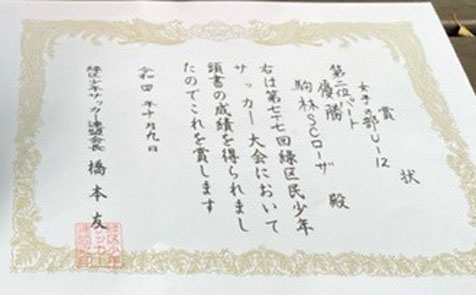 賞状
女子の部U-12
第二位パート
優勝
駒林SCローザ 殿
右は第七十七回緑区民少年
サッカー大会において
頭書の成績を得られまし
たのでこれを賞します
令和四年十月九日
緑区少年サッカー連盟会長
橋本友